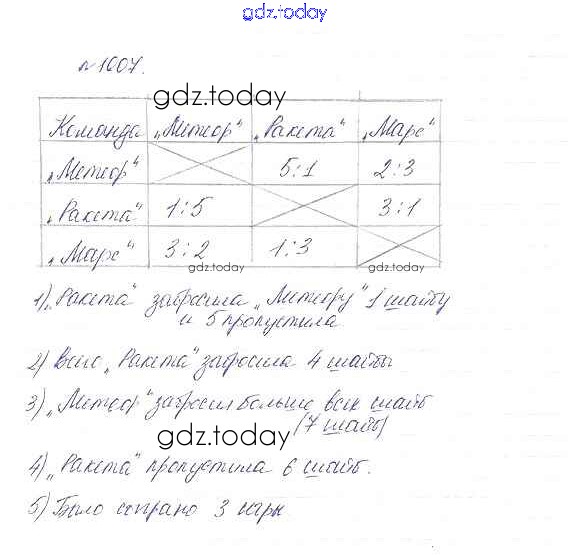 gdz.today
№1007.
gdz.today
Команда „Метеор“ „Ракета“ „Марс“
„Метеор“ 5:1 2:3
„Ракета“ 1:5 3:1
„Марс“ 3:2 1:3
gdz.today gdz.today
1) „Ракета“ забросила „Метеору“ 1 шайбу
и 5 пропустила
2) Всего „Ракета“ забросила 4 шайбы
3) „Метеор“ забросил больше всех шайб
(7 шайб)
gdz.today
4) „Ракета“ пропустила 6 шайб.
5) Было сыграно 3 игры
gdz.today